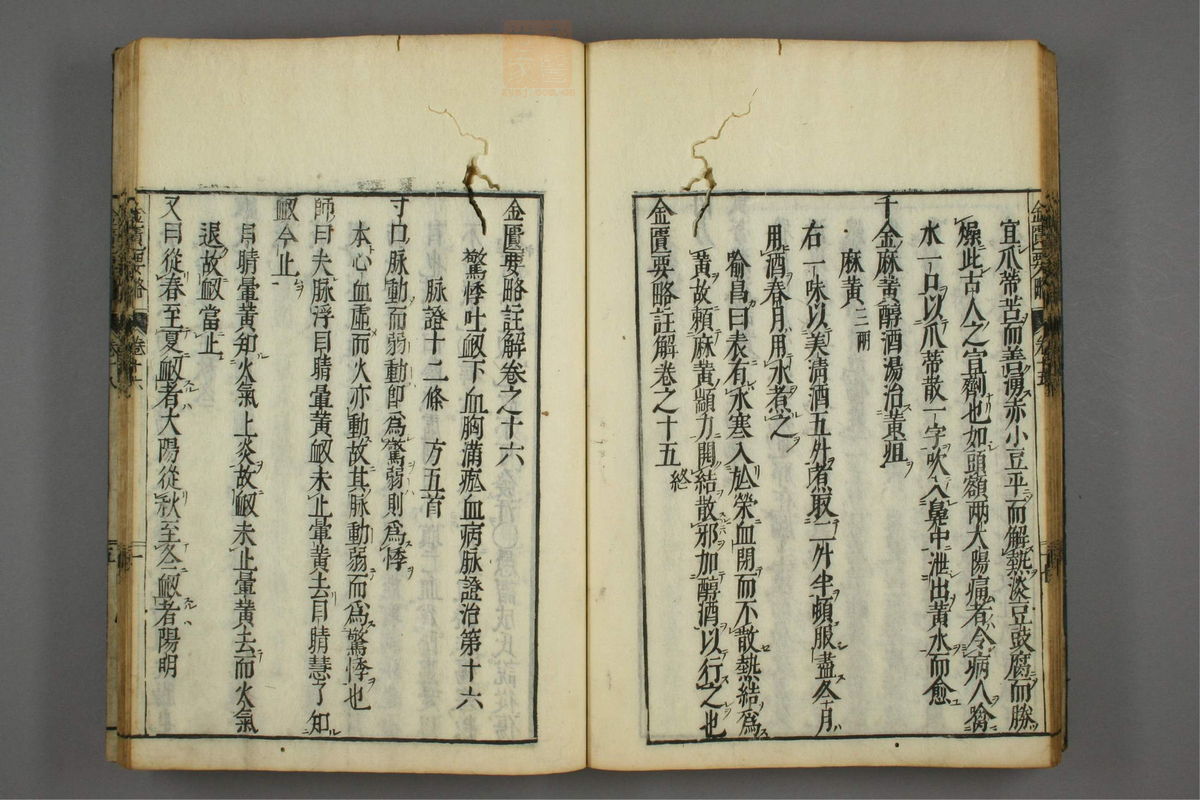 宜爪蒂苦而善湧赤小豆平而解熱淡豆豉腐而勝
燥此古人之宣劑也如頭額兩大陽痛者令病人含
水一口以爪蒂散一字吹入鼻中泄出黃水而愈
千金麻黃醇酒湯治黃疸
麻黃三兩
右一味以美清酒五升煮取二升半頓服盡冬月
用酒春月用水煮之
喻昌曰表有水寒入於榮血閉而不散熱結為
黃故賴麻黃顓力開結散邪加醇酒以行之也
金匱要略註解卷之十五終
金匱要略註解卷之十六
驚悸吐衂下血胸滿瘀血病脉證治第十六
脉證十二條 方五首
寸口脉動而弱動即為驚弱則為悸
本心血虛而火亦動故其脉動弱而為驚悸也
師曰夫脉浮目睛暈黃衂未止暈黃去目睛慧了知
衂今止
目睛暈黃知火氣上炎故衂未止暈黃去而火氣
退故衂當止
又曰從春至夏衂者大陽從秋至冬衂者陽明